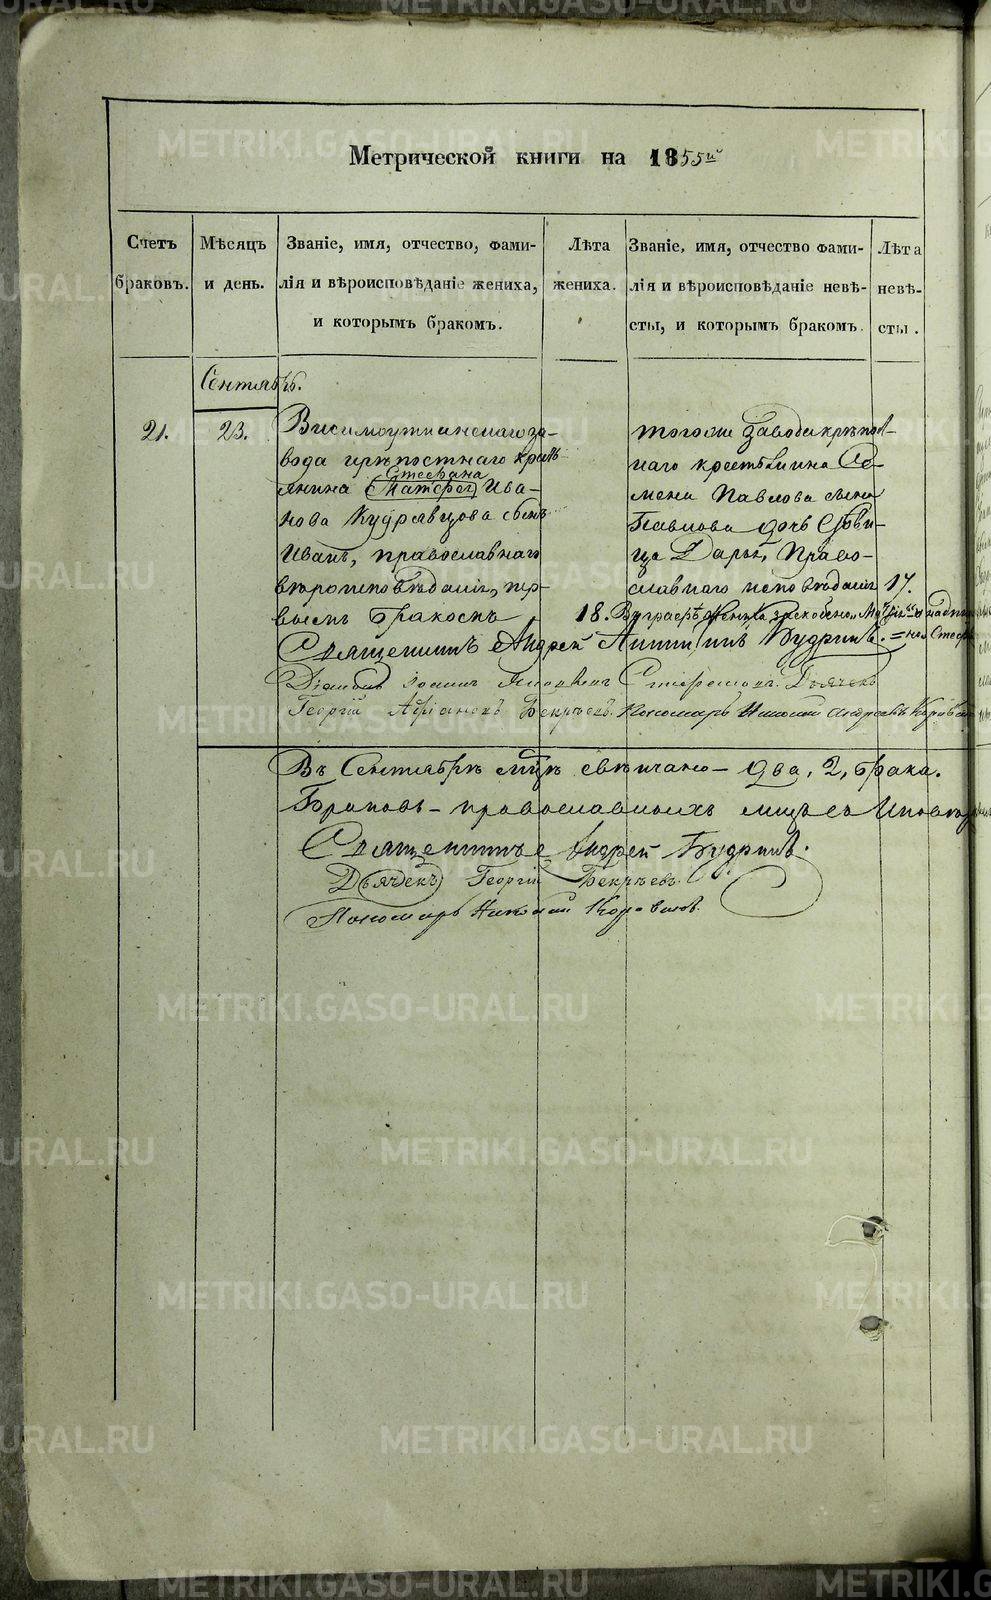 Метрической книги на 1855й
Счетъ браковъ.
Мѣсяцъ и день.
Званіе, имя, отчество, фами-
лія и вѣроисповѣданіе жениха,
и которымъ бракомъ.
Лѣта жениха.
Званіе, имя, отчество фами-
лія и вѣроисповѣданіе невѣ-
сты, и которымъ бракомъ.
Лѣта невѣ-
сты.
Сентябрь.
21.
23.
Висимоуткинскаго за-
вода крѣпостнаго крестъ
Стефана
янина (Матсфея) Ива-
нова Кудрявцова сынъ
Иванъ, православнаго
вѣроисповѣданія, пер-
вымъ бракомъ
18.
тогоже завода крѣпост-
наго крестьянина Се-
мена Павлова сына
Павлова дочь дѣви-
ца Дарья, Право-
славнаго исповѣданія
17.
Въ графѣ жениха заскоблено
Священникъ Андрей Будринъ.
Діаконъ Іоаннъ Дьячекъ
Георгій Бекрѣевъ. Пономарь Николай
Въ Сентябрѣ м-цѣ свѣнчано – два, 2, брака.
Браковъ – православныхъ лицъ съ
Священникъ Андрей Будринъ.
Дьячекъ Георгій Бекрѣевъ.
Пономарь Николай Коровинъ.
METRIKI.GASO-URAL.RU